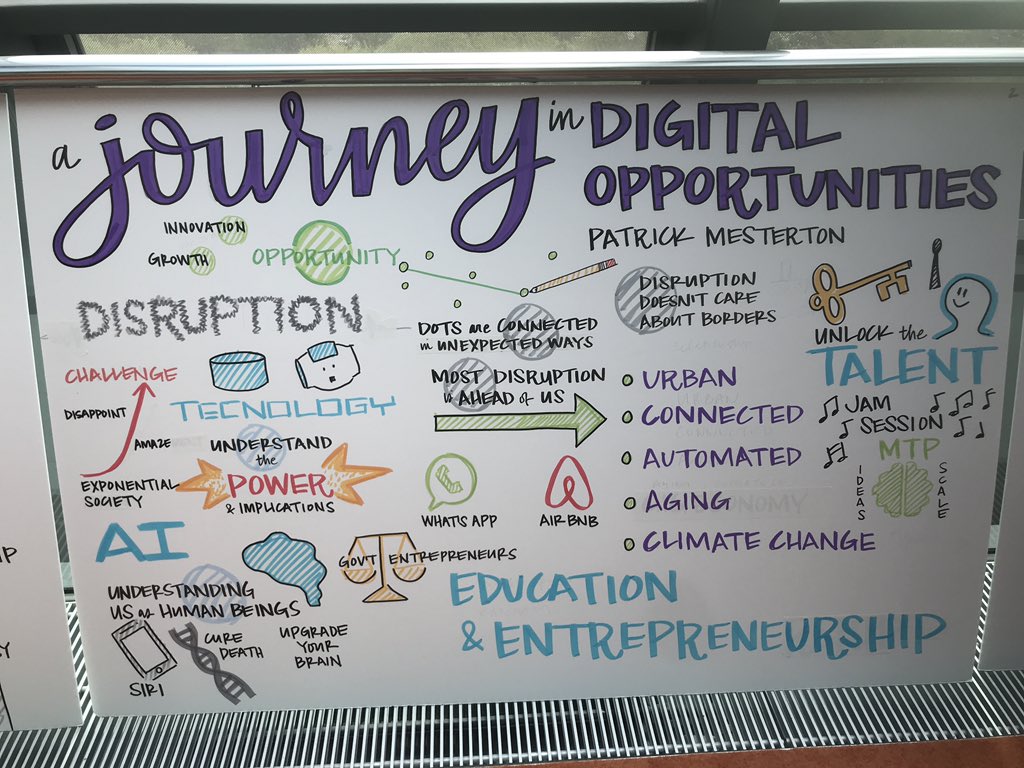 a journey in DIGITAL
OPPORTUNITIES
2
PATRICK MESTERTON
INNOVATION
GROWTH
OPPORTUNITY
DISRUPTION
DOTS are CONNECTED
in UNEXPECTED WAYS
DISRUPTION
DOESN'T CARE
ABOUT BORDERS
UNLOCK the
TALENT
CHALLENGE
DISAPPOINT
AMAZE
EXPONENTIAL
SOCIETY
TECNOLOGY
UNDERSTAND
the
POWER
& IMPLICATIONS
MOST DISRUPTION
is AHEAD of US
WHATS APP
AIRBNB
URBAN
CONNECTED
AUTOMATED
AGING
CLIMATE CHANGE
JAM
SESSION
MTP
IDEAS
SCALE
AI
UNDERSTANDING
US as HUMAN BEINGS
GOV'T ENTREPRENEURS
SIRI
CURE
DEATH
UPGRADE
YOUR
BRAIN
EDUCATION
& ENTREPRENEURSHIP